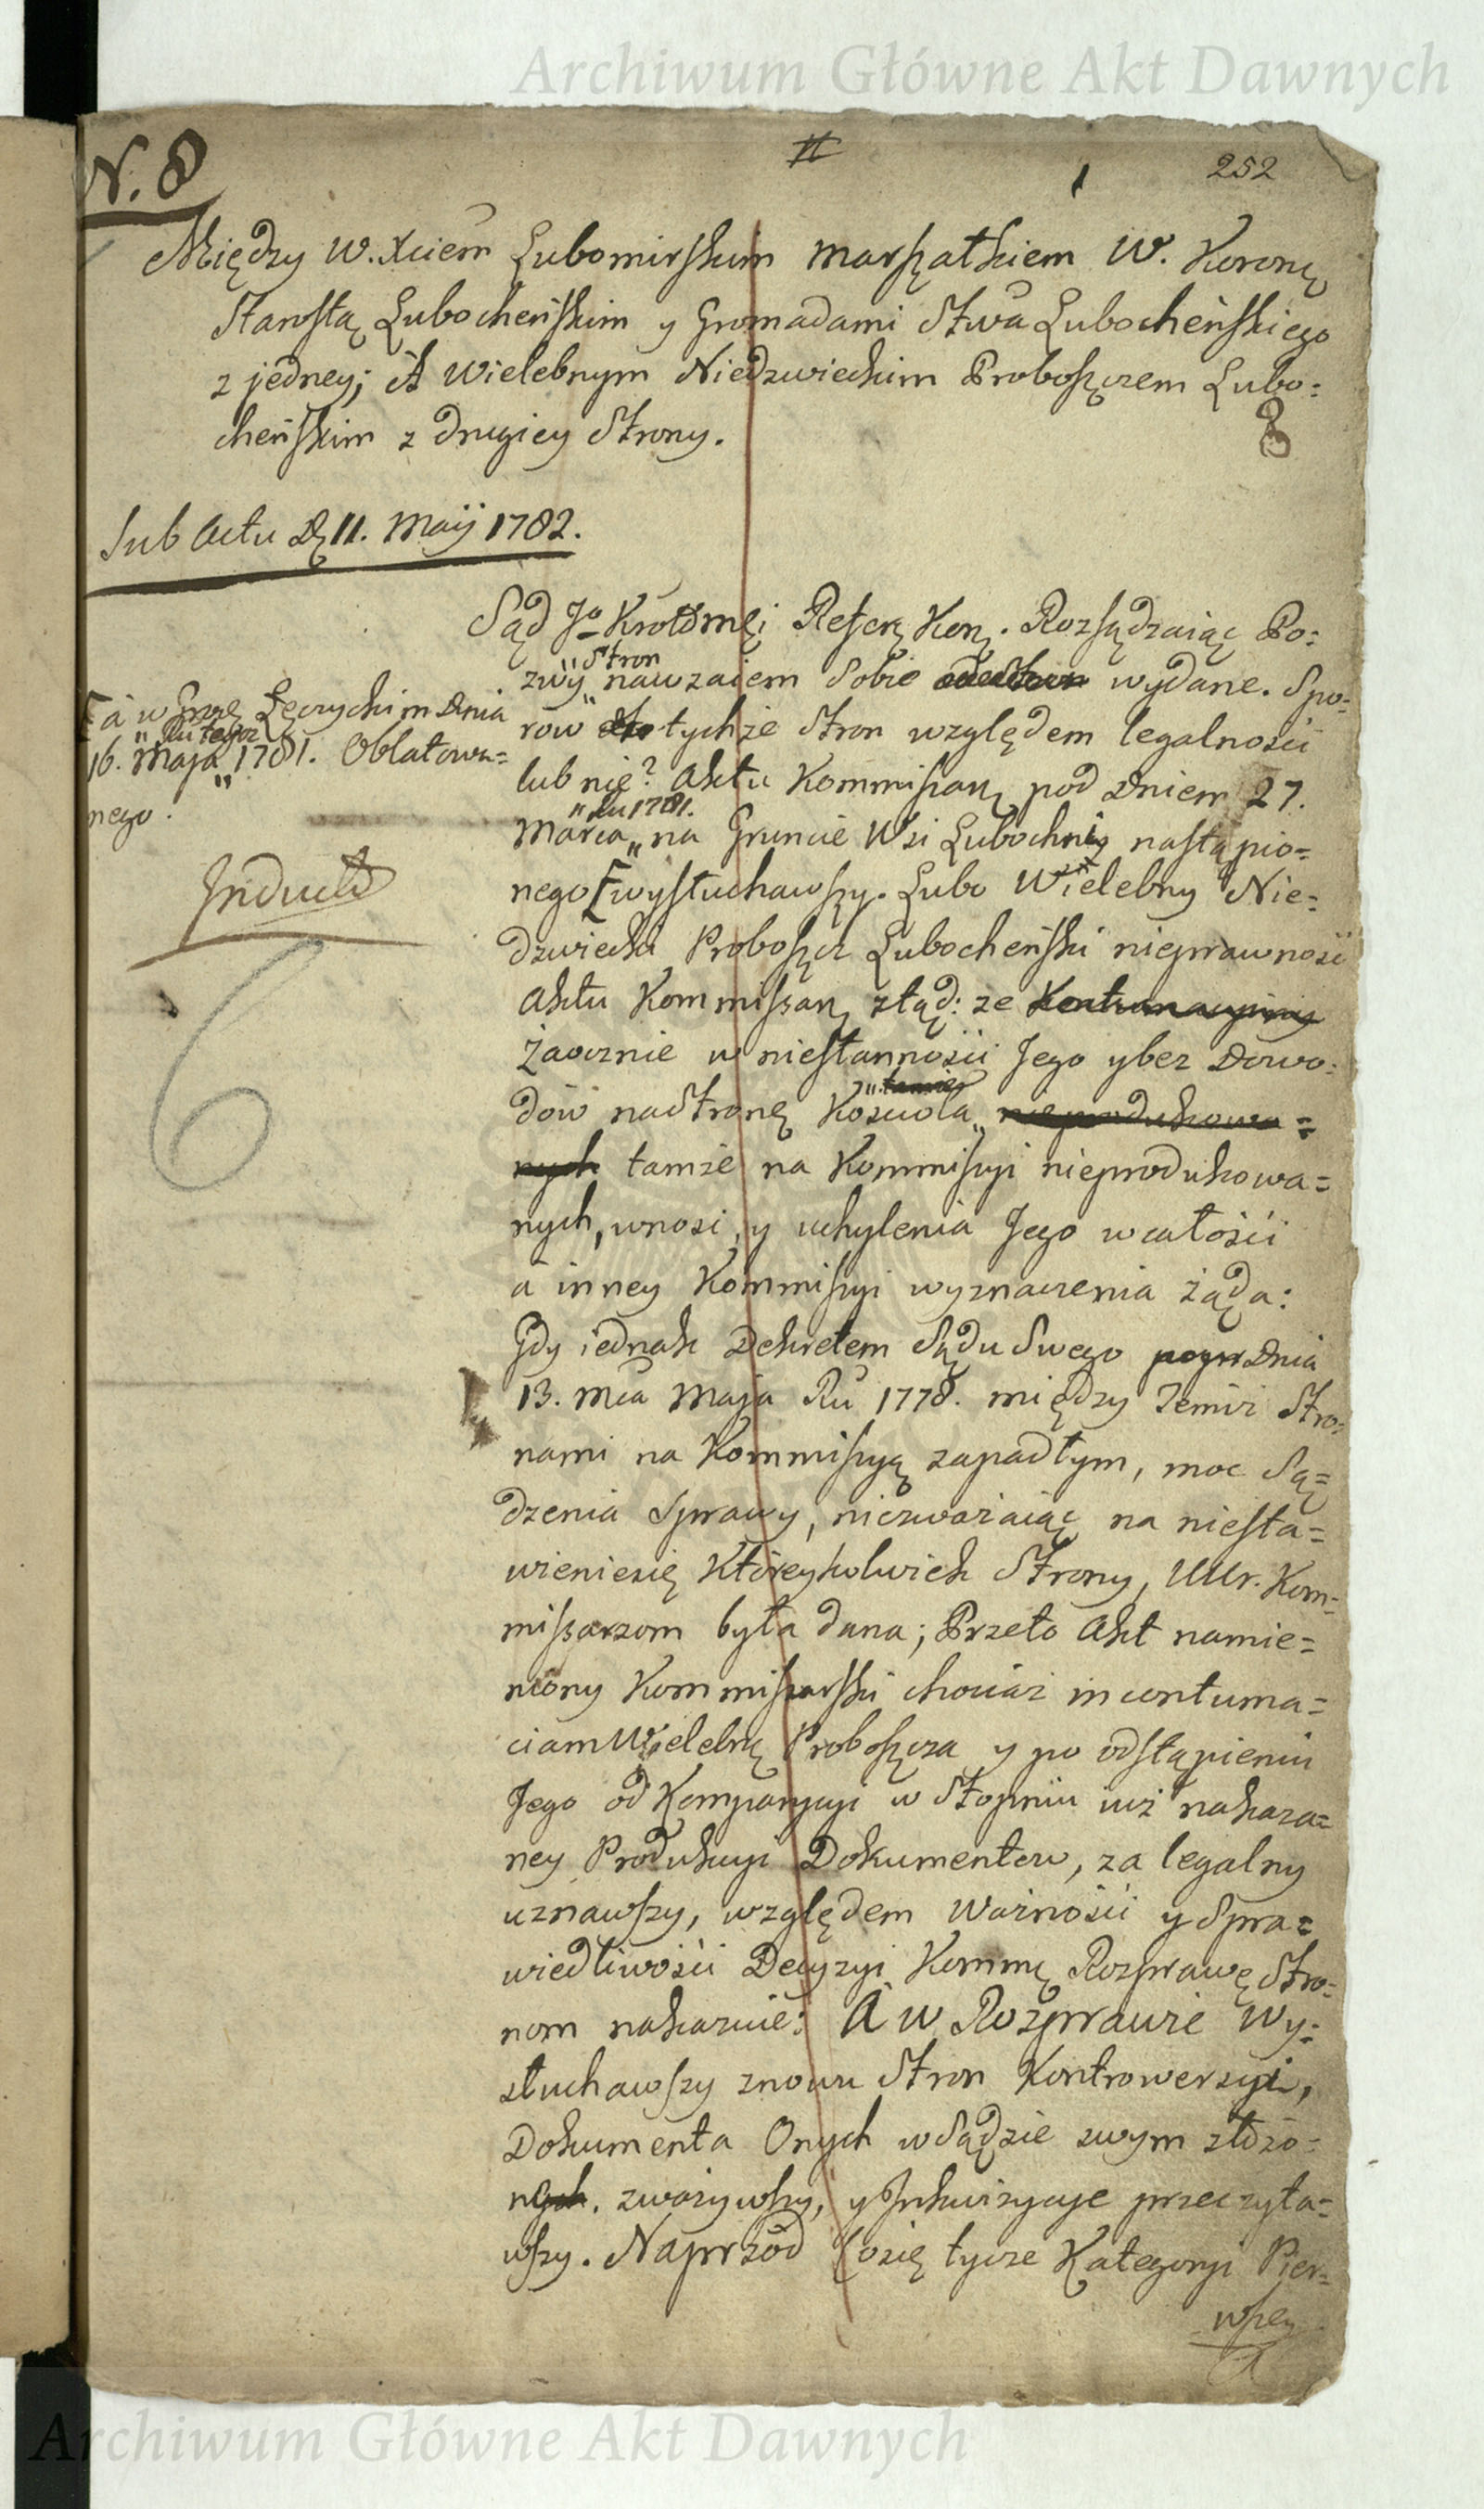 Archiwum Główne Akt Dawnych
N. 8
252
Między W. Xciem Lubomirskim Marszałkiem W. Koronę
Starostą Lubocheńskim y Gromadami Stwa Lubocheńskiego
z jedney; A Wielebnym Niedzwieckim Proboszczem Lubo=
cheńskim z drugiey Strony.
8
Sub Actu D. 11. Maij 1782.
Sąd Jo Krolomci Referę Korę. Rozsądzaiąc Po=
zwy "Stron" nawzaiem Sobie wydane. Spo=
row tychże Stron względem legalności
lub nie? Aktu Kommissarę pod Dniem 27.
Marca "Ru 1781." na Gruncie Wsi Lubochni nastąpio=
nego [wysłuchawszy. Lubo Wielebny Nie=
[a w Grodzie Łęczyckim Dnia
16. Maja "Ru tegoż" 1781. Oblatowa=
nego.
Induct
6
dzwiecki Proboszcz Lubocheński nieprawność
Aktu Kommissarę ztąd: że Kontumacyiny
Zaocznie w niestanności Jego y bez Dowo=
dów na Stronę Kościoła "tamże" nieprodukowa=
nych tamże na Kommissyi nieprodukowa=
nych, wnosi, y uchylenia Jego w całości
a inney Kommissyi wyznaczenia żąda:
Gdy iednak Dekretem Sądu Swego Dnia
13. Mca Maja Ru 1778. między Temiż Stro=
nami na Kommissyą zapadłym, moc Są=
dzenia Sprawy, niezważaiąc na niesta=
wieniesię Któreykolwiek Strony, UUr. Kom=
missarzom była dana; Przeto Akt namie=
niony Kommissarski chociaż in contuma=
ciam Wielebnę Proboszcza y po odstąpieniu
Jego od Komparycyi w Stopniu iuż nakaza=
ney Produkcyi Dokumentow, za legalny
uznawszy, względem Ważności y Spra=
wiedliwości Decyzyi Kommę Rozprawę Stro=
nom nakazuie: A w Rozprawie Wy=
słuchawszy znowu Stron Kontrowersyi,
Dokumenta Onych w Sądzie swym złożo=
ne zważywszy, y Inkwizycye przeczyta=
wszy. Naprzód Co się tycze Kategoryi Pier=
wszey
Archiwum Główne Akt Dawnych